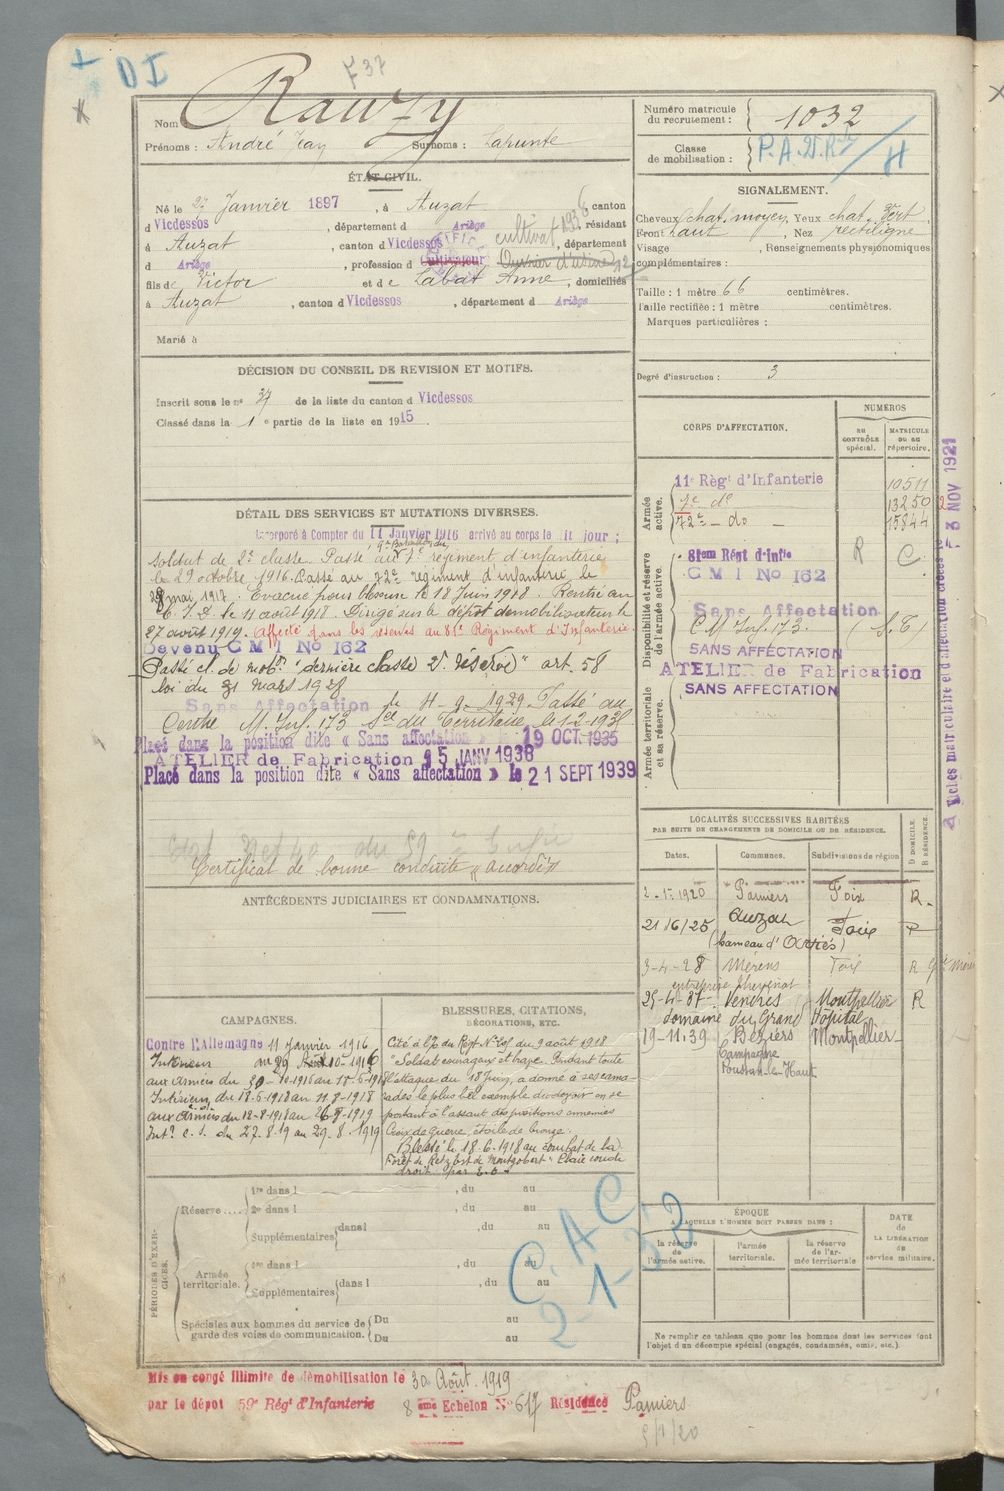 + DI
F 37
Nom Rauzy
Prénoms : André Jean Surnoms : Lapunte
ÉTAT CIVIL.
Né le 27 Janvier 1897, à Auzat canton
d Vicdessos, département d Ariège, résidant
à Auzat, canton d Vicdessos, département
d Ariège, profession d Cultivateur Ouvrier d'usine
cultivat 1936
fils de Victor et de Labat Anne, domiciliés
à Auzat, canton d Vicdessos, département d Ariège
Marié à
DÉCISION DU CONSEIL DE REVISION ET MOTIFS.
Inscrit sous le nº 37 de la liste du canton d Vicdessos
Classé dans la 1e partie de la liste en 1915.
DÉTAIL DES SERVICES ET MUTATIONS DIVERSES.
Incorporé à Compter du 11 Janvier 1916 arrivé au corps le dit jour ;
soldat de 2e classe. Passé au 9e Bataillon du 7e régiment d'infanterie
le 29 octobre 1916. Passé au 72e régiment d'infanterie le
28 mai 1917. Évacué pour blessure le 18 Juin 1918. Rentré au
C. I. D. le 11 août 1918. Dirigé sur le dépôt démobilisateur le
27 août 1919. Affecté dans les réserves au 81e Régiment d'Infanterie.
Devenu C M I No 162
Passé cl. de mobon "dernière classe 2e réserve" art. 58
loi du 31 mars 1928
Sans Affectation le 11-9-1929 Passé au
Centre M. Inf. 173 Son du Territoire, le 1-2-1935
Placé dans la position dite « Sans affectation » le 19 OCT. 1935
ATELIER de Fabrication 15 JANV 1938
Placé dans la position dite « Sans affectation » le 21 SEPT 1939
Certificat de bonne conduite "accordé"
ANTÉCÉDENTS JUDICIAIRES ET CONDAMNATIONS.
CAMPAGNES.
Contre l'Allemagne 11 Janvier 1916
Intérieur au 29 10-1916
aux Armées du 30-10-1916 au 17-6-1918
Intérieur, du 18-6-1918 au 11-8-1918
aux armées du 12-8-1918 au 26-8-1919
Intr c. s. du 27.8.19 au 29.8.1919
BLESSURES, CITATIONS,
DÉCORATIONS, ETC.
Cité à l'O du Régt Nº 201 du 9 août 1918
"Soldat courageux et brave. Pendant toute
l'attaque du 18 Juin, a donné à ses cama-
rades le plus bel exemple du devoir en se
portant à l'assaut des positions ennemies
Croix de guerre, étoile de bronze.
Blessé le 18-6-1918 au combat de la
Forêt de Retz Est de Montgobert "Plaie coude
droit" par E.O.
PÉRIODES D'EXERCICES.
Réserve.... 1re dans l , du au
2e dans l , du au
Supplémentaires dans l , du au
Armée territoriale. 1re dans l , du au
Supplémentaires dans l , du au
Spéciales aux hommes du service de garde des voies de communication. Du au
Du au
C. A C
2-1-32
Mis en congé illimité de démobilisation le 30 Août 1919
par le dépôt 59e Régt d'Infanterie 8 ème Echelon Nº 617 Résidence Pamiers
5/1/20
Numéro matricule du recrutement : 1032
Classe de mobilisation : P.A.V.Rte / H
SIGNALEMENT.
Cheveux chat. moyen, Yeux chat. Vert,
Front haut, Nez rectiligne
Visage , Renseignements physionomiques
complémentaires :
Taille : 1 mètre 66 centimètres.
Taille rectifiée : 1 mètre centimètres.
Marques particulières :
Degré d'instruction : 3
CORPS D'AFFECTATION.
NUMÉROS
AU CONTRÔLE spécial.
MATRICULE ou au répertoire.
Armée active.
11e Régt d'Infanterie 10511
7e do 13250
72e - do - 15844
Disponibilité et réserve de l'armée active.
81em Régt d'Infie R C
C M I No 162
Sans Affectation
C M Inf. 173 (S.T)
SANS AFFECTATION
ATELIER de Fabrication
SANS AFFECTATION
Armée territoriale et sa réserve.
3 NOV 1921
LOCALITÉS SUCCESSIVES HABITÉES
PAR SUITE DE CHANGEMENTS DE DOMICILE OU DE RÉSIDENCE.
D DOMICILE. R RÉSIDENCE.
Dates. Communes. Subdivisions de région
2-1-1920 Pamiers Foix R.
21/6/25 Auzat Foix R
(hameau d'Ourrés)
3-4-28 Mérens Foix R
entreprise
25-4-37 Vendres Montpellier R
domaine du Grand Hôpital
19-11-39 Béziers Montpellier
Campagne
Poussan-le-Haut
ÉPOQUE
A LAQUELLE L'HOMME DOIT PASSER DANS :
la réserve de l'armée active.
l'armée territoriale.
la réserve de l'armée territoriale
DATE de LA LIBÉRATION du service militaire.
Ne remplir ce tableau que pour les hommes dont les services font
l'objet d'un décompte spécial (engagés, condamnés, omis, etc.).